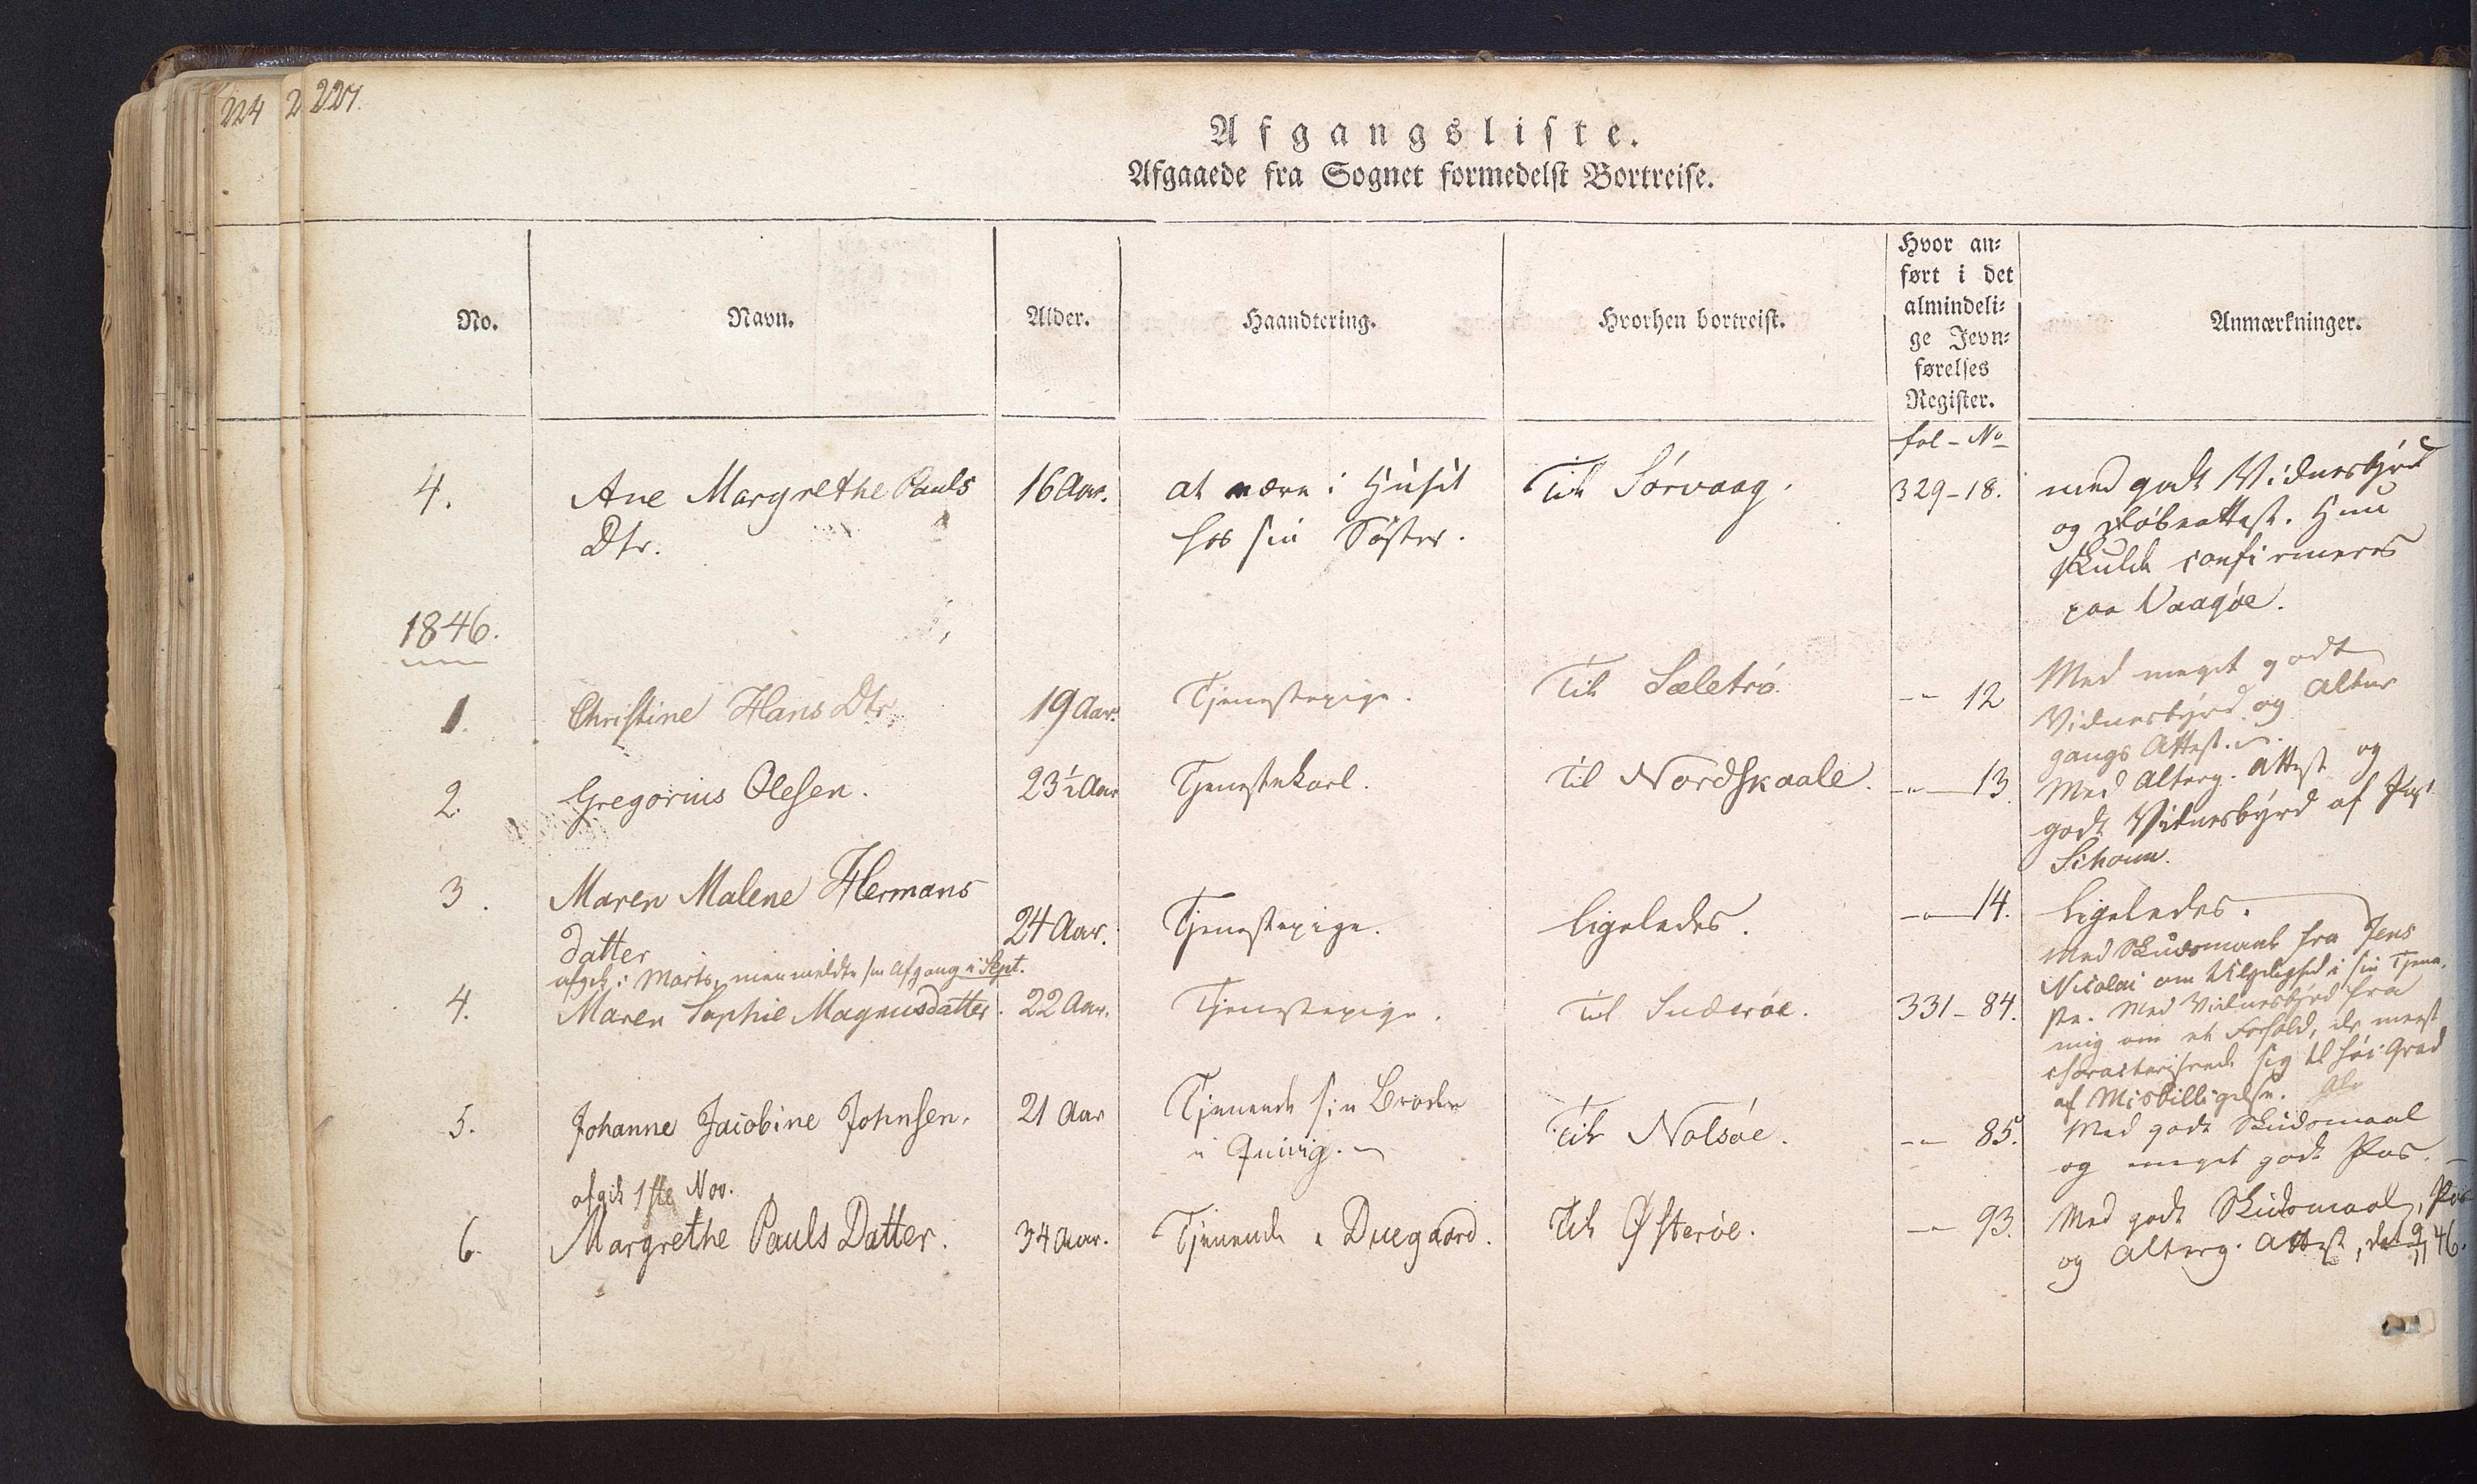 224
227.
Afgangsliste.
Afgaaede fra Sognet formedelst Bortreise.
No.
Navn.
Alder.
Haandtering.
Hvorhen bortreist.
Hvor an=
ført i det
almindeli=
ge Jevn=
førelses
Register.
Anmærkninger.
fol - No
4.
Ane Margrethe Pauls
Dtr.
16 Aar.
at være i Huset
hos sin Søster.
Til Sørvaag.
329-18.
med godt Vidnesbyrd
og Døbeattest. Hun
skulde confirmeres
paa Vaagøe.
1846.
1.
Christine Hans Dtr
19 Aar.
Tjenestepige.
Til Sæletrø.
-"- 12
Med meget godt
Vidnesbyrd og Alter
gangs Attest.
2.
Gregorius Olesen.
23½ Aar
Tjenestekarl.
Til Nordskaale.
-"- 13.
Med Alterg. Attest og
godt Vidnesbyrd af
3.
Maren Malene Hermans
datter
24 Aar.
Tjenestepige.
ligeledes.
-"- 14.
ligeledes.
afgik i Marts, men meldte sin Afgang i Sept.
4.
Maren Sophie Magnusdatter.
22 Aar.
Tjenestepige.
Til Suderøe.
331-84.
Med Skudsmaal fra Jens
Nicolai om i sin Tjene-
ste. Med Vidnesbyrd fra
mig om et Forhold, der meest
characteriserede sig til høi Grad
af Misbilligelse.
5.
Johanne Jacobine Johnsen.
21 Aar
Tjenende sin Broder
i Qvivig.
Til Nolsøe.
-"- 85.
Med godt Skudsmaal
og meget godt Pas.
afgik 1ste Nov.
6.
Margrethe Pauls Datter.
34 Aar.
Tjenende i Duegaard.
Til Østerøe.
-"- 93.
Med godt Skudsmaal, Pas
og Alterg. Attest, dat 9/11 46.